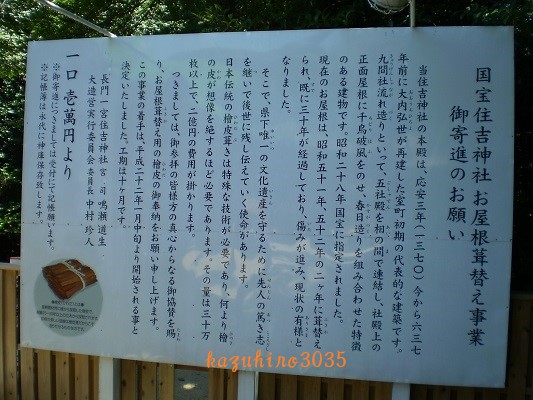 国宝住吉神社お屋根葺替え事業
御寄進のお願い
当住吉神社の本殿は、応安三年(一三七〇)今から六三七
年前に大内弘世が再建した室町初期の代表的な建築です。
九間社流れ造りといって、五社殿を相の間で連結し、社殿上の
正面屋根に千鳥破風をのせ、春日造りを組み合わせた特徴
のある建物です。昭和二十八年国宝に指定されました。
現在のお屋根は、昭和五十一年、五十二年の二ヶ年に葺替え
られ、既に三十年が経過しており、傷みが進み、現状の有様と
なりました。
そこで、県下唯一の文化遺産を守るために先人の篤き志
を継いで後世に残し伝えていく使命があります。
日本伝統の檜皮葺きは特殊な技術が必要であり、何より檜
の皮が想像を絶するほど必要であります。その量は三十万
枚以上で、二億円の費用が掛かります。
つきましては、御参拝の皆様方の真心からなる御協賛を賜
り、お屋根葺替え用の檜皮の御奉納をお願い申し上げます。
この事業の着手は、平成二十一年一月中旬より開始される事と
決定いたしました。工期は十ヶ月です。
長門一宮住吉神社宮司 鳴瀬道生
大造営実行委員会委員長 中村珍人
一口 壱萬円より
※御寄進につきましては受付にて記帳願います。
※記帳簿は永代に神庫保存致します。
kazuhino3035